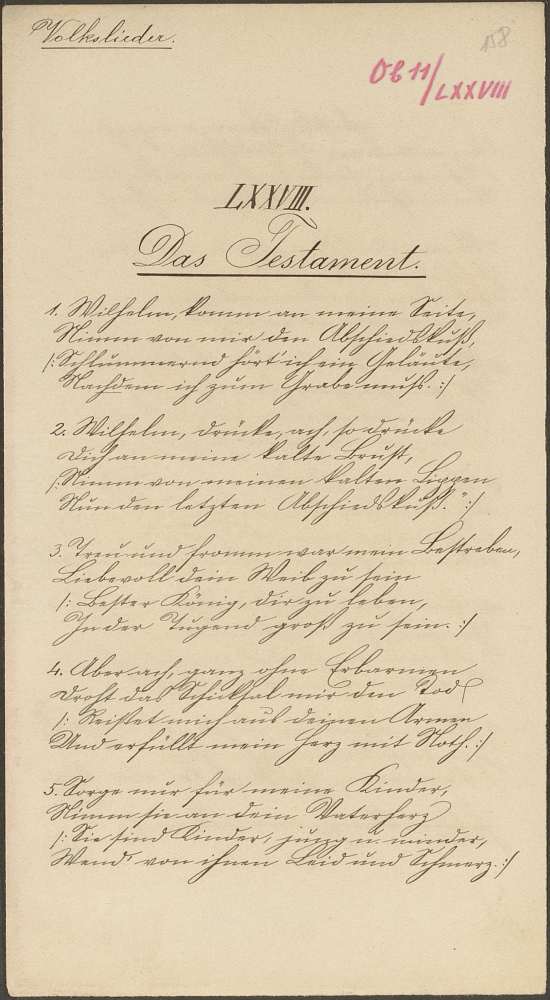 Volkslieder.
158
Ob 11/LXXVIII
LXXVIII.
Das Testament.
1. Wilhelm, komm an meine Seite,
Nimm von mir den Abschiedskuß,
/: Schlummernd hört' ich ein Geläute,
Nachdem ich zum Grabe muß. :/
2. Wilhelm, drücke, ach, so drücke
Dich an meine kalte Brust,
/: Nimm von meinen kalten Lippen
Nun den letzten Abschiedskuß." :/
3. Treu und fromm war mein Bestreben,
Liebevoll dein Weib zu sein
/: Bester König, dir zu leben,
In der Tugend groß zu sein. :/
4. Aber ach, ganz ohne Erbarmen
Droht das Schicksal mir den Tod
/: Reisset mich aus deinen Armen
Und erfüllt mein Herz mit Noth. :/
5. Sorge nur für meine Kinder,
Nimm sie an dein Vaterherz
/: Sie sind Kinder, jung u. minder,
Wend' von ihnen Leid und Schmerz. :/